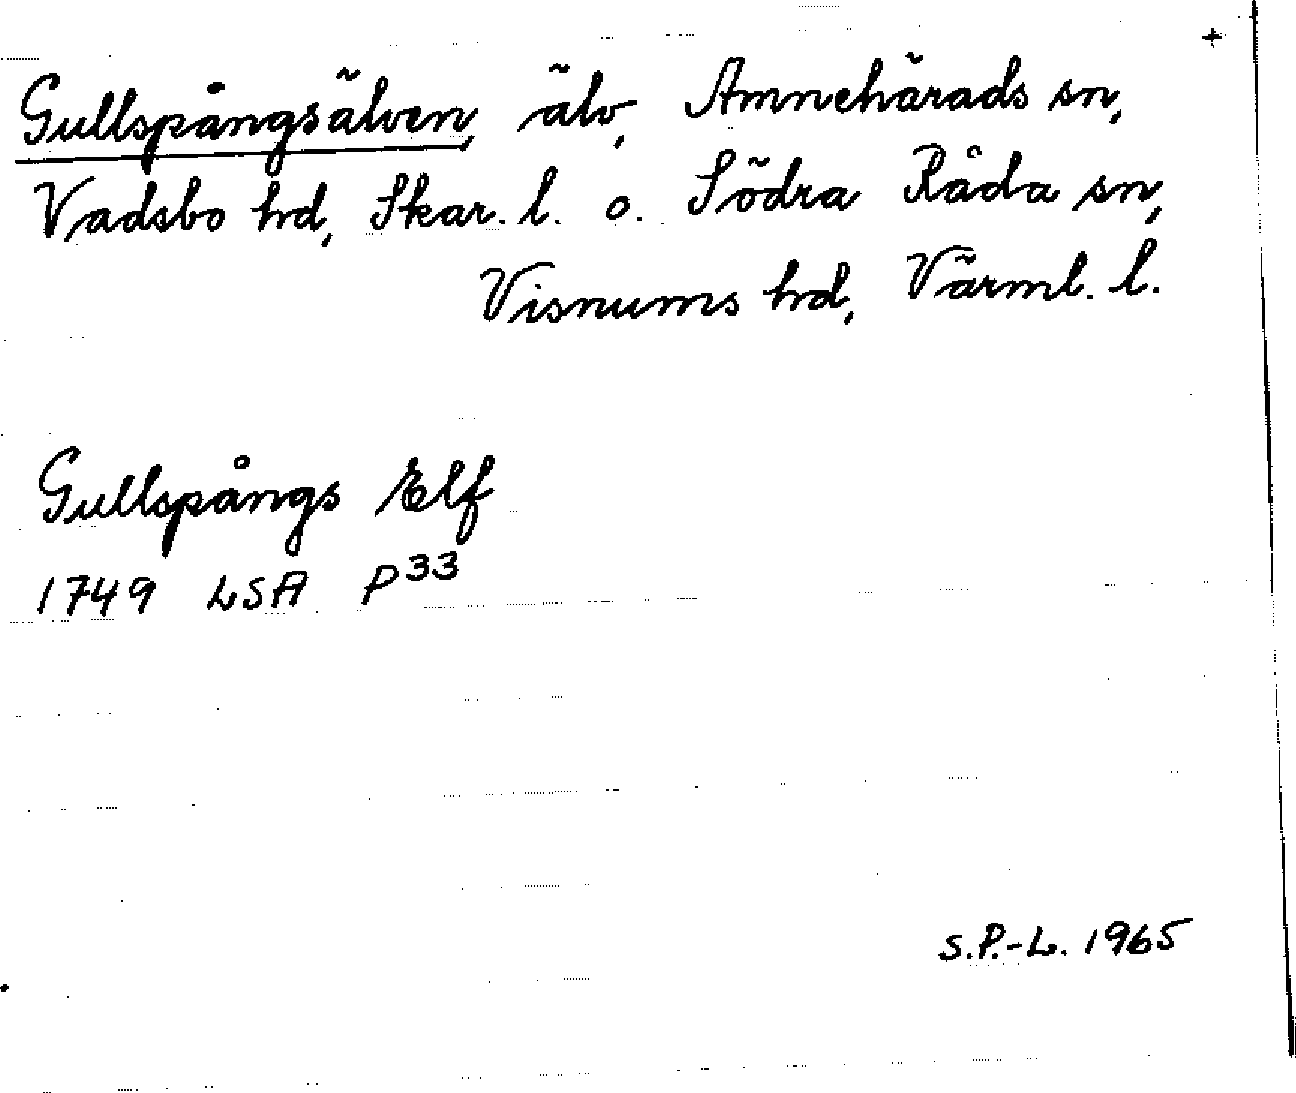 +
Gullspångsälven, älv, Amnehärads sn,
Vadsbo hd, Skar. l. o. Södra Råda sn,
Visnums hd, Värml. l.
Gullspångs Elf
1749 LSA P33
S.P.-L. 1965